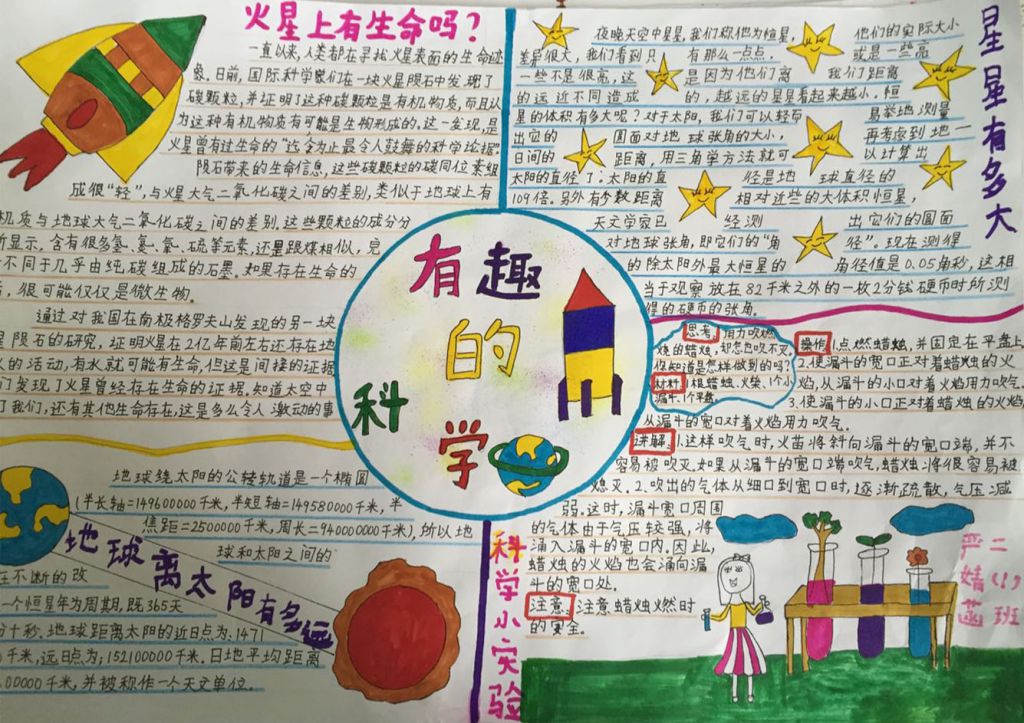 火星上有生命吗？
一直以来,人类都在寻找火星表面的生命迹
象.日前,国际科学家们在一块火星陨石中发现了
碳颗粒,并证明了这种碳颗粒是有机物质,而且认
为这种有机物质有可能是生物形成的.这一发现,是
火星曾有过生命的"迄今为止最令人鼓舞的科学论据".
陨石带来的生命信息,这些碳颗粒的碳同位素组
成很"轻",与火星大气二氧化碳之间的差别,类似于地球上有
机质与地球大气二氧化碳之间的差别.这些颗粒的成分分
析显示,含有很多氢、氮、氧、硫等元素,还量跟煤相似,完
不同于几乎由纯碳组成的石墨.如果存在生命的
,很可能仅仅是微生物.
通过对我国在南极格罗夫山发现的另一块
星陨石的研究,证明火星在2亿年前左右还存在地
的活动,有水就可能有生命,但这是间接的证据
们发现了火星曾经存在生命的证据.知道太空中
了我们,还有其他生命存在.这是多么令人激动的事
有趣
的
科
学
星星有多大
夜晚天空中星星,我们称他为恒星, 他们的实际大小
差异很大,我们看到只 有那么一点点, 或是一些亮
一些不是很亮,这 是因为他们离 我们距离
的远近不同造成 的,越远的星星看起来越小.恒
星的体积有多大呢?对于太阳,我们可以轻而 易举地测量
出它的 圆面对地球张角的大小, 再考虑到地一
日间的 距离,用三角学方法就可 以计算出
太阳的直径了.太阳的直 径是地 球直径的
109倍.另外有参数距离 相对近些的大体积恒星,
天文学家已 经测 出它们的圆面
对地球张角,即它们的"角 径".现在测得
的除太阳外最大恒星的 角径值是0.05角秒,这相
当于观察放在82千米之外的一枚2分钱硬币时所测
得的硬币的张角.
思考:用力吹燃
烧的蜡烛,却怎也吹不灭.
你知道是怎样做到的吗?
材料:1根蜡烛、火柴、1个小
漏斗、1个平盘.
操作:1.点燃蜡烛,并固定在平盘上.
2.使漏斗的宽口正对着蜡烛的火
焰,从漏斗的小口对着火焰用力吹气.
3.使漏斗的小口正对着蜡烛的火焰
从漏斗的宽口对着火焰用力吹气.
讲解:1.这样吹气时,火苗将斜向漏斗的宽口端,并不
容易被吹灭.如果从漏斗的宽口端吹气,蜡烛将很容易被
熄灭.2.吹出的气体从细口到宽口时,逐渐疏散,气压减
弱.这时,漏斗宽口周围
的气体由于气压较强,将
涌入漏斗的宽口内.因此,
蜡烛的火焰也会涌向漏
斗的宽口处.
注意:注意蜡烛火燃时
的安全.
科学小实验
二(1)班
地球离太阳有多远
地球绕太阳的公转轨道是一个椭圆
(半长轴=149600000千米,半短轴=149580000千米,半
焦距=2500000千米,周长=940000000千米),所以地
球和太阳之间的
在不断的改
一个恒星年为周期,既365天
十秒.地球距离太阳的近日点为:1471
千米,远日点为:152100000千米.日地平均距离
00000千米,并被称作一个天文单位.